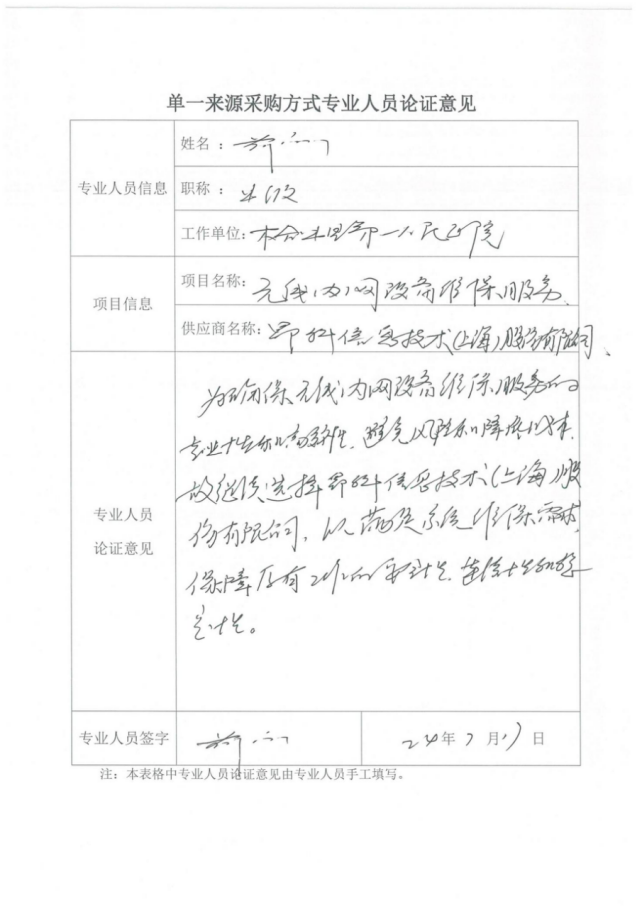 单一来源采购方式专业人员论证意见
专业人员信息
姓名：
职称：
工作单位: 第一人民医院
项目信息
项目名称: 无线内网设备维保服务
供应商名称: 昂科信息技术(上海)股份有限公司
专业人员
论证意见
为确保无线内网设备维保服务的
专业性和高效性，避免风险和降低成本，
故继续选择昂科信息技术(上海)股
份有限公司，以满足系统维保需求，
保障原有工作的 连续性和稳
定性。
专业人员签字
24年7月17日
注：本表格中专业人员论证意见由专业人员手工填写。